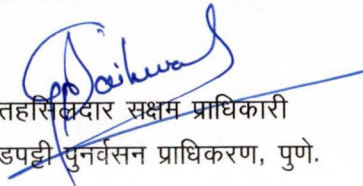 तहसिलदार सक्षम प्राधिकारी
डपट्टी पुनर्वसन प्राधिकरण, पुणे.